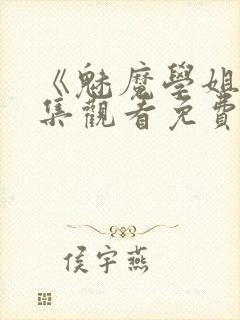 《魅魔學姐
集觀看免費
侯宇燕